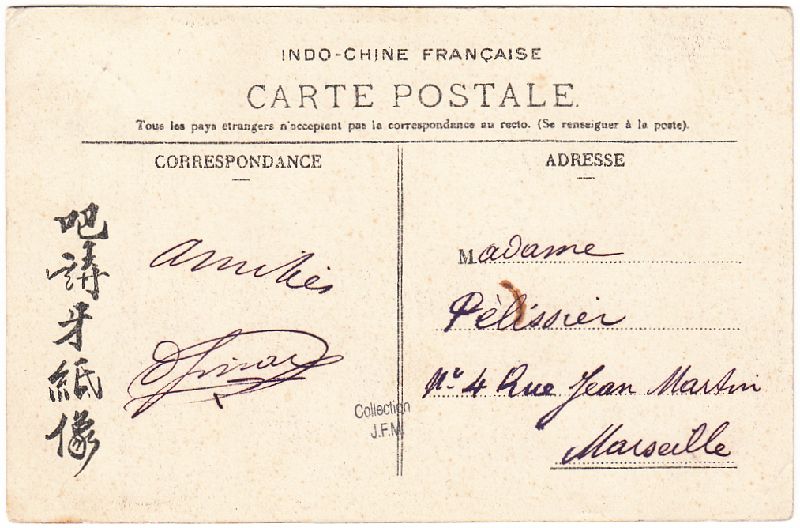 INDO-CHINE FRANÇAISE
CARTE POSTALE.
Tous les pays etrangers n'acceptent pas la correspondance au recto. (Se renseigner à la poste).
CORRESPONDANCE
ADRESSE
吧講牙紙像
Amitiés
Madame
Pélissier
Nº 4 Rue Jean Martin
Marseille
Collection
J.F.M.